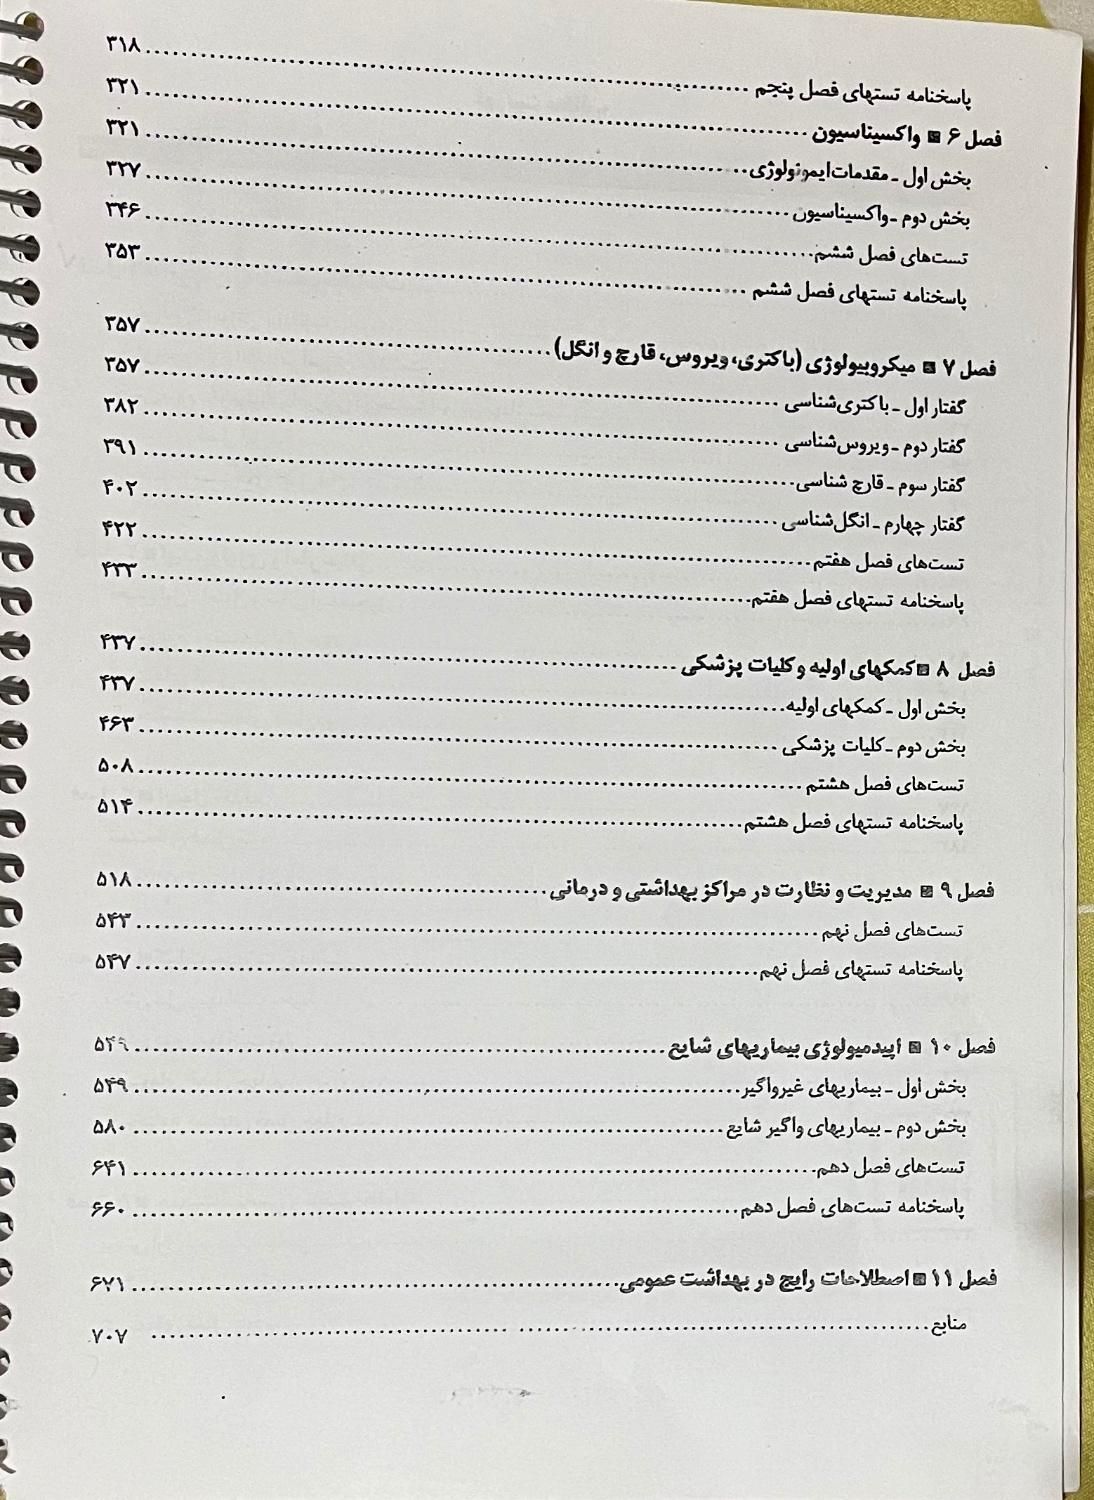 پاسخنامه تستهای فصل پنجم ........ ۳۱۸
فصل ۶ ■ واکسیناسیون ........ ۳۲۱
بخش اول ـ مقدمات ایمونولوژی ........ ۳۲۱
بخش دوم ـ واکسیناسیون ........ ۳۲۷
تست‌های فصل ششم ........ ۳۴۶
پاسخنامه تستهای فصل ششم ........ ۳۵۳
فصل ۷ ■ میکروبیولوژی (باکتری، ویروس، قارچ و انگل) ........ ۳۵۷
گفتار اول ـ باکتری‌شناسی ........ ۳۵۷
گفتار دوم ـ ویروس‌شناسی ........ ۳۸۲
گفتار سوم ـ قارچ شناسی ........ ۳۹۱
گفتار چهارم ـ انگل‌شناسی ........ ۴۰۲
تست‌های فصل هفتم ........ ۴۲۲
پاسخنامه تستهای فصل هفتم ........ ۴۳۳
فصل ۸ ■ کمکهای اولیه و کلیات پزشکی ........ ۴۳۷
بخش اول ـ کمکهای اولیه ........ ۴۳۷
بخش دوم ـ کلیات پزشکی ........ ۴۶۳
تست‌های فصل هشتم ........ ۵۰۸
پاسخنامه تستهای فصل هشتم ........ ۵۱۴
فصل ۹ ■ مدیریت و نظارت در مراکز بهداشتی و درمانی ........ ۵۱۸
تست‌های فصل نهم ........ ۵۴۳
پاسخنامه تستهای فصل نهم ........ ۵۴۷
فصل ۱۰ ■ اپیدمیولوژی بیماریهای شایع ........ ۵۴۹
بخش اول ـ بیماریهای غیرواگیر ........ ۵۴۹
بخش دوم ـ بیماریهای واگیر شایع ........ ۵۸۰
تست‌های فصل دهم ........ ۶۴۱
پاسخنامه تست‌های فصل دهم ........ ۶۶۰
فصل ۱۱ ■ اصطلاحات رایج در بهداشت عمومی ........ ۶۷۱
منابع ........ ۷۰۷